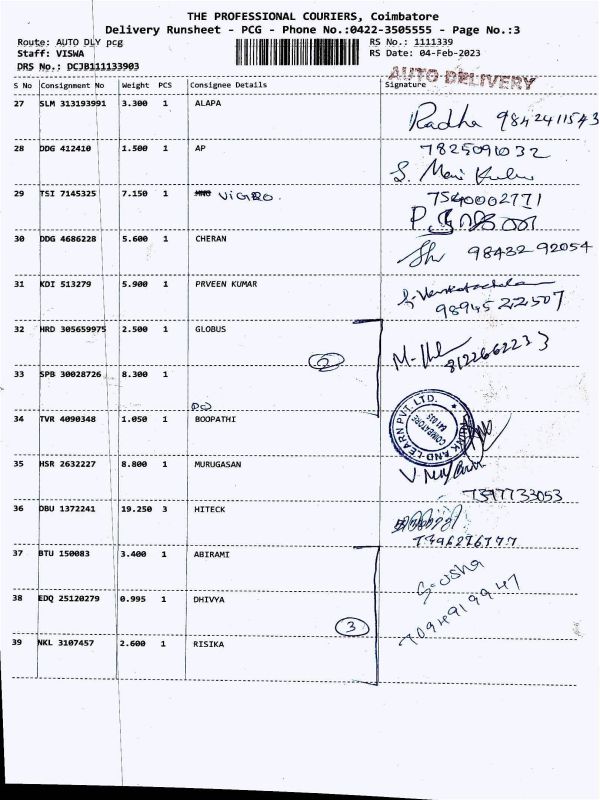 THE PROFESSIONAL COURIERS, Coimbatore
Delivery Runsheet - PCG - Phone No.:0422-3505555 - Page No.:3
Route: AUTO DLY pcg RS No.: 1111339
Staff: VISWA RS Date: 04-Feb-2023
DRS No.: DCJB111133903
AUTO DELIVERY
S No Consignment No Weight PCS Consignee Details Signature
27 SLM 313193991 3.300 1 ALAPA
Radha 9842411543
28 DDG 412410 1.500 1 AP 7825091032
S.
29 TSI 7145325 7.150 1 VIGRO. 7540002771
30 DDG 4686228 5.600 1 CHERAN
98432 92054
31 KDI 513279 5.900 1 PRVEEN KUMAR
98945 22507
32 HRD 305659975 2.500 1 GLOBUS
2
8122662233
33 SPB 30028726 8.300 1
PQ
34 TVR 4090348 1.050 1 BOOPATHI
THINK AND LEARN PVT. LTD.
COIMBATORE
641 035
35 HSR 2632227 8.800 1 MURUGASAN
7397733053
36 DBU 1372241 19.250 3 HITECK
37 BTU 150083 3.400 1 ABIRAMI
G. Usha
7094919947
38 EDQ 25120279 0.995 1 DHIVYA
3
39 NKL 3107457 2.600 1 RISIKA